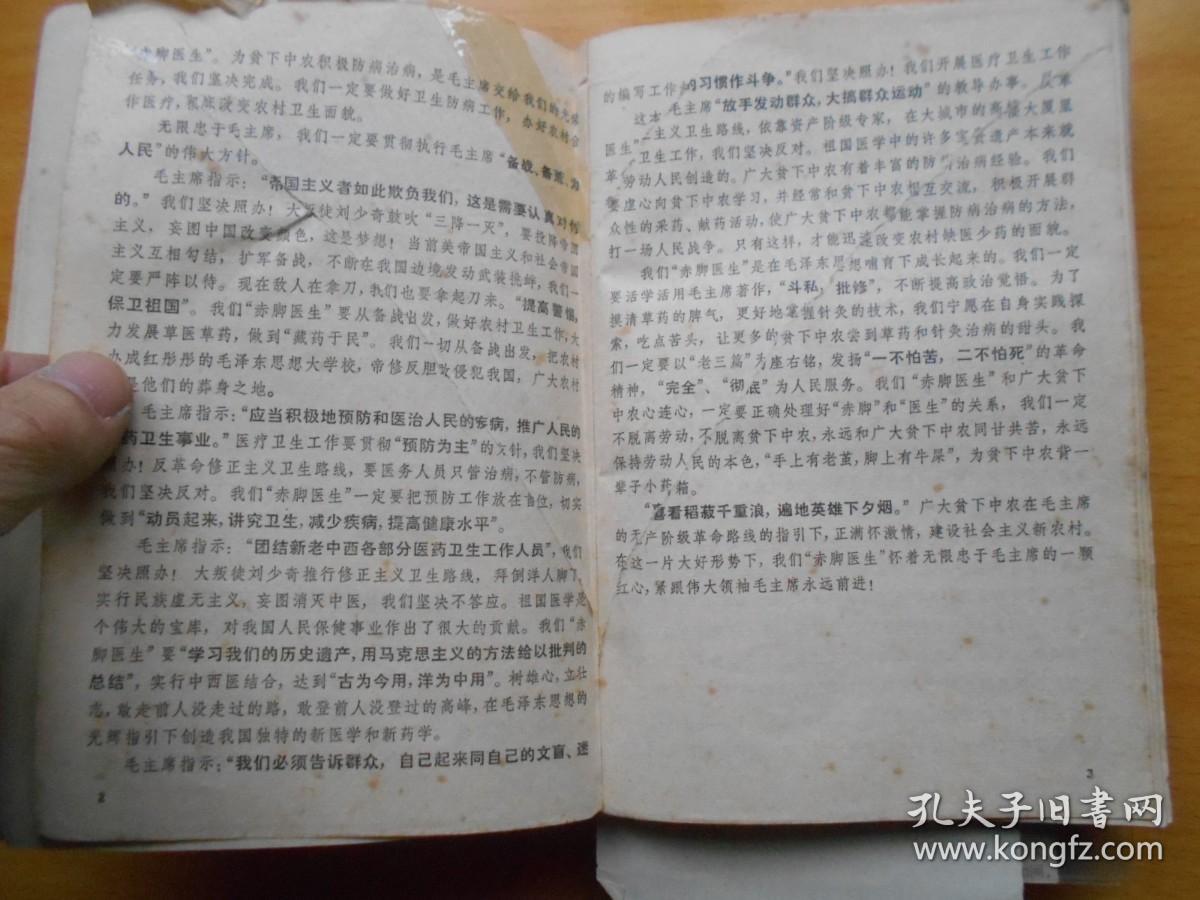 “赤脚医生”。为贫下中农积极防病治病，是毛主席交给我们的光荣
任务，我们坚决完成。我们一定要做好卫生防病工作，办好农村合
作医疗，彻底改变农村卫生面貌。
无限忠于毛主席，我们一定要贯彻执行毛主席“备战、备荒、为
人民”的伟大方针。
毛主席指示：“帝国主义者如此欺负我们，这是需要认真对付
的。”我们坚决照办！大叛徒刘少奇鼓吹“三降一灭”，要投降帝国
主义，妄图中国改变颜色，这是梦想！当前美帝国主义和社会帝国
主义互相勾结，扩军备战，不断在我国边境发动武装挑衅，我们一
定要严阵以待。现在敌人在拿刀，我们也要拿起刀来。“提高警惕，
保卫祖国”。我们“赤脚医生”要从备战出发，做好农村卫生工作，大
力发展草医草药，做到“藏药于民”。我们一切从备战出发，把农村
办成红彤彤的毛泽东思想大学校，帝修反胆敢侵犯我国，广大农村
是他们的葬身之地。
毛主席指示：“应当积极地预防和医治人民的疾病，推广人民的
药卫生事业。”医疗卫生工作要贯彻“预防为主”的方针，我们坚决
照办！反革命修正主义卫生路线，要医务人员只管治病，不管防病，
我们坚决反对。我们“赤脚医生”一定要把预防工作放在首位，切实
做到“动员起来，讲究卫生，减少疾病，提高健康水平”。
毛主席指示：“团结新老中西各部分医药卫生工作人员”，我们
坚决照办！大叛徒刘少奇推行修正主义卫生路线，拜倒洋人脚下，
实行民族虚无主义，妄图消灭中医，我们坚决不答应。祖国医学是
个伟大的宝库，对我国人民保健事业作出了很大的贡献。我们“赤
脚医生”要“学习我们的历史遗产，用马克思主义的方法给以批判的
总结”，实行中西医结合，达到“古为今用，洋为中用”。树雄心，立壮
志，敢走前人没走过的路，敢登前人没登过的高峰，在毛泽东思想的
光辉指引下创造我国独特的新医学和新药学。
毛主席指示：“我们必须告诉群众，自己起来同自己的文盲、迷
2
的编写工作的习惯作斗争。”我们坚决照办！我们开展医疗卫生工作
这本毛主席“放手发动群众，大搞群众运动”的教导办事。反革
医生”主义卫生路线，依靠资产阶级专家，在大城市的高楼大厦里
卫生工作，我们坚决反对。祖国医学中的许多宝贵遗产本来就
革劳动人民创造的。广大贫下中农有着丰富的防病治病经验。我们
要虚心向贫下中农学习，并经常和贫下中农相互交流，积极开展群
众性的采药、献药活动，使广大贫下中农都能掌握防病治病的方法，
打一场人民战争。只有这样，才能迅速改变农村缺医少药的面貌。
我们“赤脚医生”是在毛泽东思想哺育下成长起来的。我们一定
要活学活用毛主席著作，“斗私，批修”，不断提高政治觉悟。为了
摸清草药的脾气，更好地掌握针灸的技术，我们宁愿在自身实践探
索，吃点苦头，让更多的贫下中农尝到草药和针灸治病的甜头。我
们一定要以“老三篇”为座右铭，发扬“一不怕苦，二不怕死”的革命
精神，“完全”、“彻底”为人民服务。我们“赤脚医生”和广大贫下
中农心连心，一定要正确处理好“赤脚”和“医生”的关系，我们一定
不脱离劳动，不脱离贫下中农，永远和广大贫下中农同甘共苦，永远
保持劳动人民的本色，“手上有老茧，脚上有牛屎”，为贫下中农背一
辈子小药箱。
“喜看稻菽千重浪，遍地英雄下夕烟。”广大贫下中农在毛主席
的无产阶级革命路线的指引下，正满怀激情，建设社会主义新农村。
在这一片大好形势下，我们“赤脚医生”怀着无限忠于毛主席的一颗
红心，紧跟伟大领袖毛主席永远前进！
3
孔夫子旧书网
www.kongfz.com